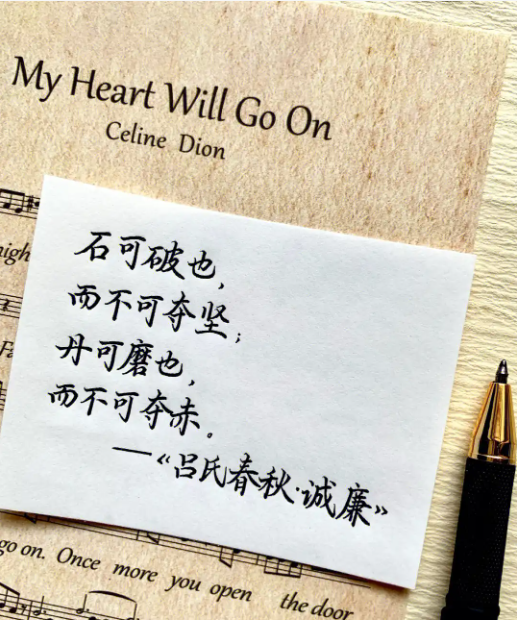 My Heart Will Go On
Celine Dion
石可破也,
而不可夺坚;
丹可磨也,
而不可夺赤。
——《吕氏春秋·诚廉》
go on. Once more you open the door